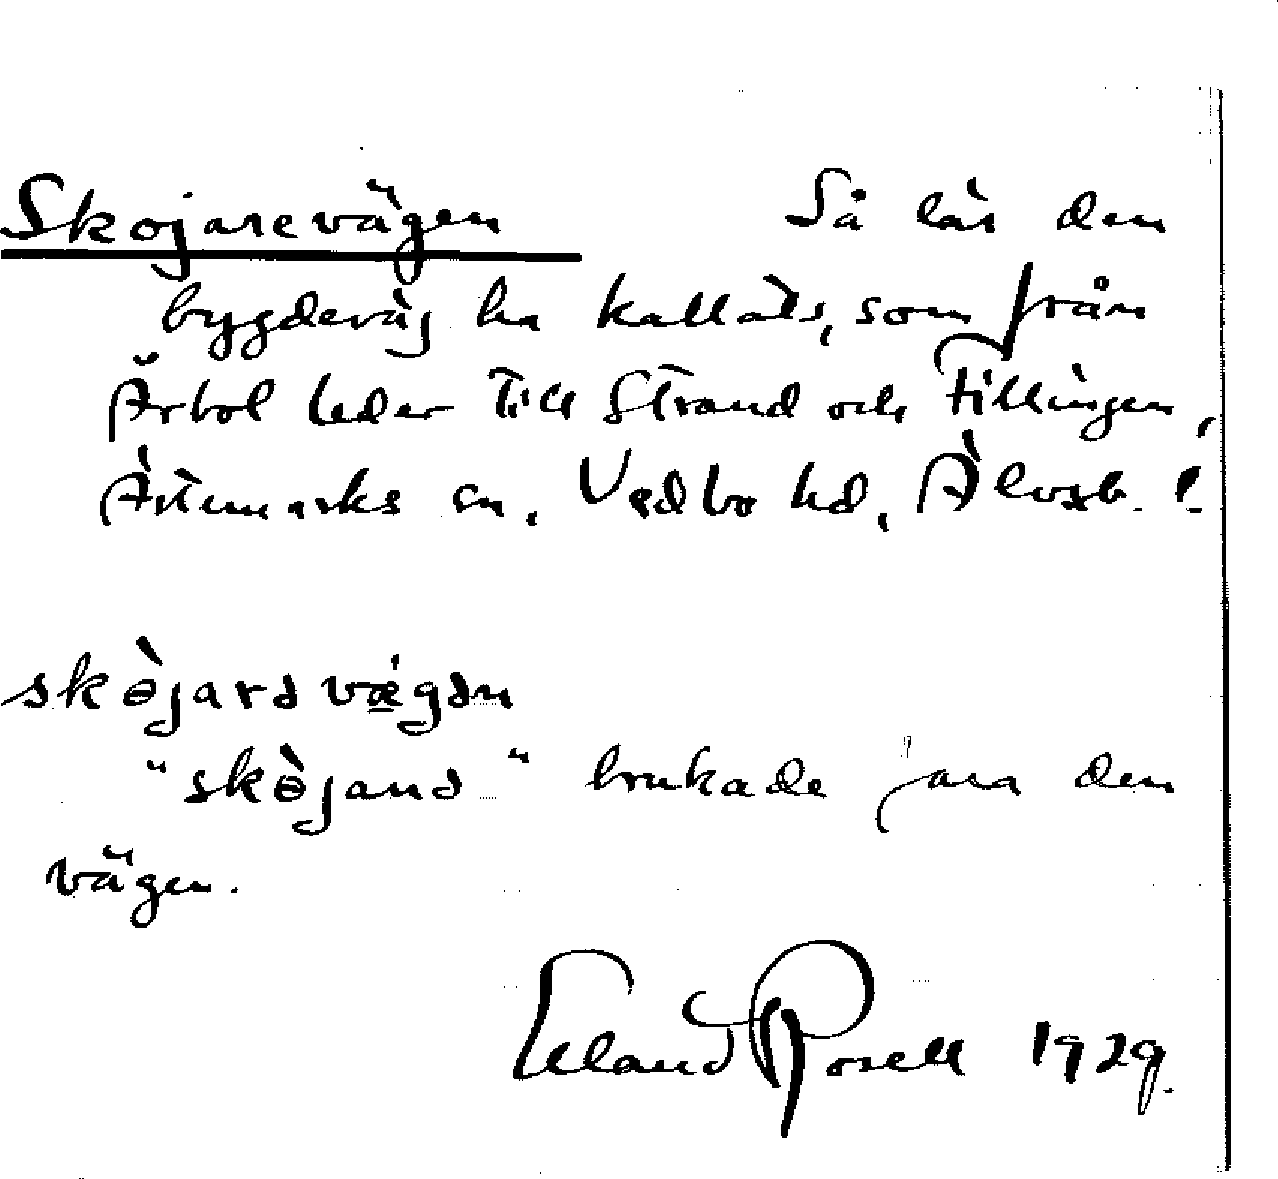 Skojarevägen Så lär den
bygdeväg ha kallats, som från
Årbol leder till Strand och Fillingen,
Ärtemarks sn, Vedbo hd, Älvsb. l.
skɵ̀jarə vǽgən
"skɵ̀janə" brukade fara den
vägen.
Erland Rosell 1929.